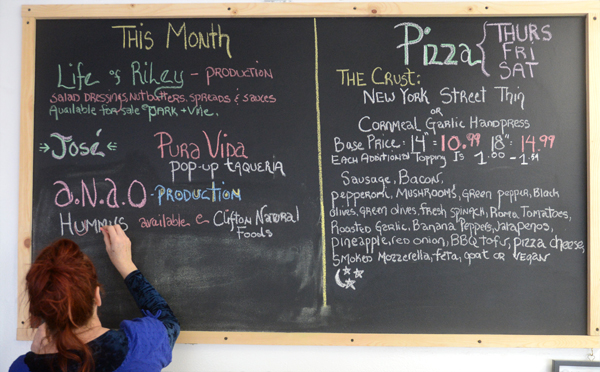 THIS MONTH
Life of Riley - PRODUCTION
SALAD DRESSINGS, NUT BUTTERS, SPREADS & SAUCES
Available for sale PARK + Vine.
José
PURA VIDA
POP-UP TAQUERIA
a.N.a.O - PRODUCTION
HUMMUS available @ Clifton Natural
Foods
Pizza { THURS
FRI
SAT
THE CRUST:
NEW YORK STREET THIN
OR
CORNMEAL GARLIC HANDPRESS
BASE PRICE: 14" = 10.99 18" = 14.99
EACH ADDITIONAL TOPPING IS 1.00 -
SAUSAGE, BACON,
PEPPERONI, MUSHROOMS, GREEN PEPPER, BLACK
OLIVES, GREEN OLIVES, FRESH SPINACH, ROMA TOMATOES,
ROASTED GARLIC, BANANA PEPPERS, JALAPENOS,
PINEAPPLE, RED ONION, BBQ TOFU, PIZZA CHEESE,
SMOKED MOZZERELLA, FETA, GOAT OR VEGAN